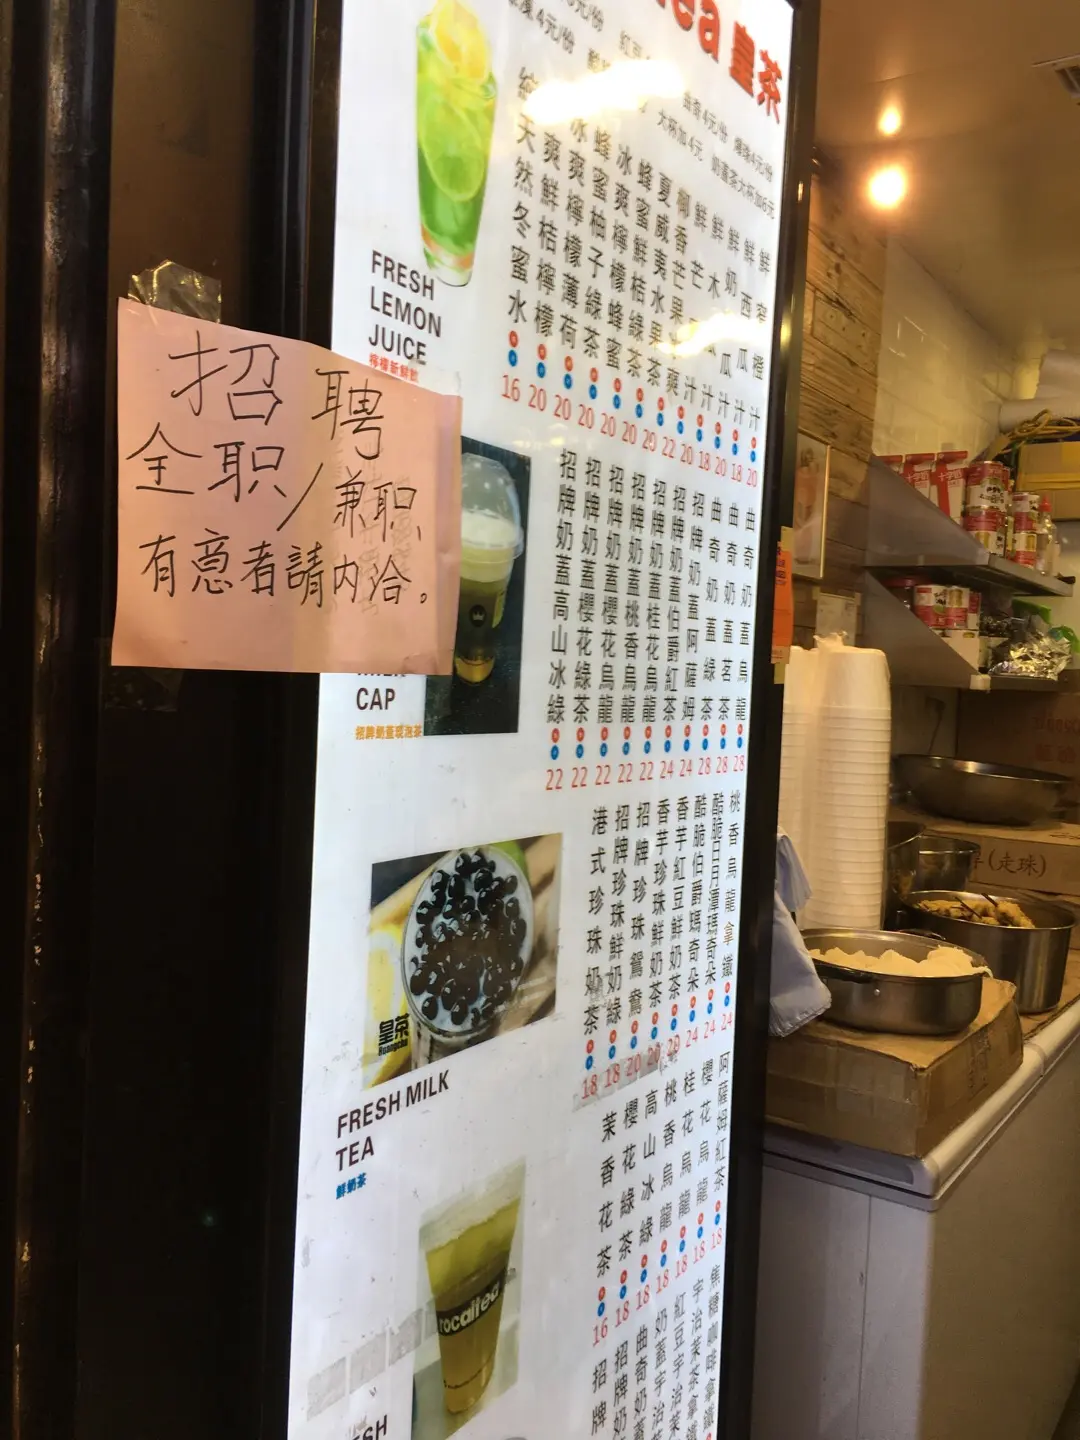 皇茶
曲奇4元/份 爆珠4元/份
大杯加4元 奶蓋茶大杯加6元
招聘
全职/兼职、
有意者請内洽。
FRESH
LEMON
JUICE
檸檬新鮮飲
純天然冬蜜水 16
爽鮮桔檸檬 20
冰爽檸檬薄荷 20
蜂蜜柚子綠茶 20
冰爽檸檬蜂蜜 20
蜂蜜鮮桔綠茶 20
夏威夷水果茶 20
椰香芒果爽 22
鮮芒汁 20
鮮木瓜汁 18
鮮奶瓜汁 20
鮮西瓜汁 18
鮮橙汁 20
CAP
招牌奶蓋現泡茶
招牌奶蓋高山冰綠 22
招牌奶蓋櫻花綠茶 22
招牌奶蓋櫻花烏龍 22
招牌奶蓋桃香烏龍 22
招牌奶蓋桂花烏龍 22
招牌奶蓋伯爵紅茶 24
招牌奶蓋阿薩姆 24
曲奇奶蓋綠茶 28
曲奇奶蓋茗茶 28
曲奇奶蓋烏龍 28
皇茶
FRESH MILK
TEA
鮮奶茶
港式珍珠奶茶 18
招牌珍珠鮮奶綠 18
招牌珍珠鴛鴦 20
香芋珍珠鮮奶茶 20
香芋紅豆鮮奶茶 20
酷脆伯爵媽奇朵 24
酷脆日月潭瑪奇朵 24
桃香烏龍拿鐵 24
茉香花茶 16
櫻花綠茶 18
高山冰綠 18
桃香烏龍 18
桂花烏龍 18
櫻花烏龍 18
阿薩姆紅茶 18
招牌
招牌奶
曲奇奶蓋
奶蓋宇治
紅豆宇治
宇治茶拿鐵
焦糖咖啡拿鐵
(走珠)